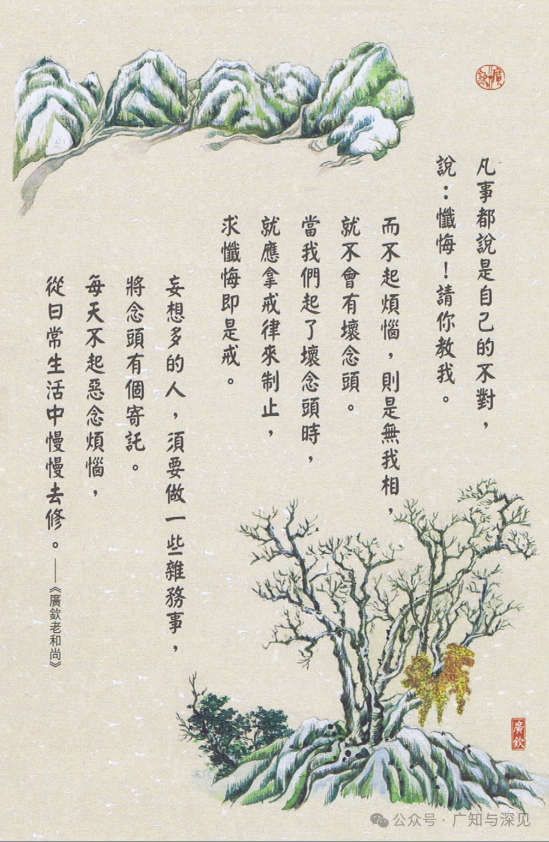 凡事都說是自己的不對，
說：懺悔！請你教我。
而不起煩惱，則是無我相，
就不會有壞念頭。
當我們起了壞念頭時，
就應拿戒律來制止，
求懺悔即是戒。
妄想多的人，須要做一些雜務事，
將念頭有個寄託。
每天不起惡念煩惱，
從日常生活中慢慢去修。——《廣欽老和尚》
廣欽
公众号·广知与深见